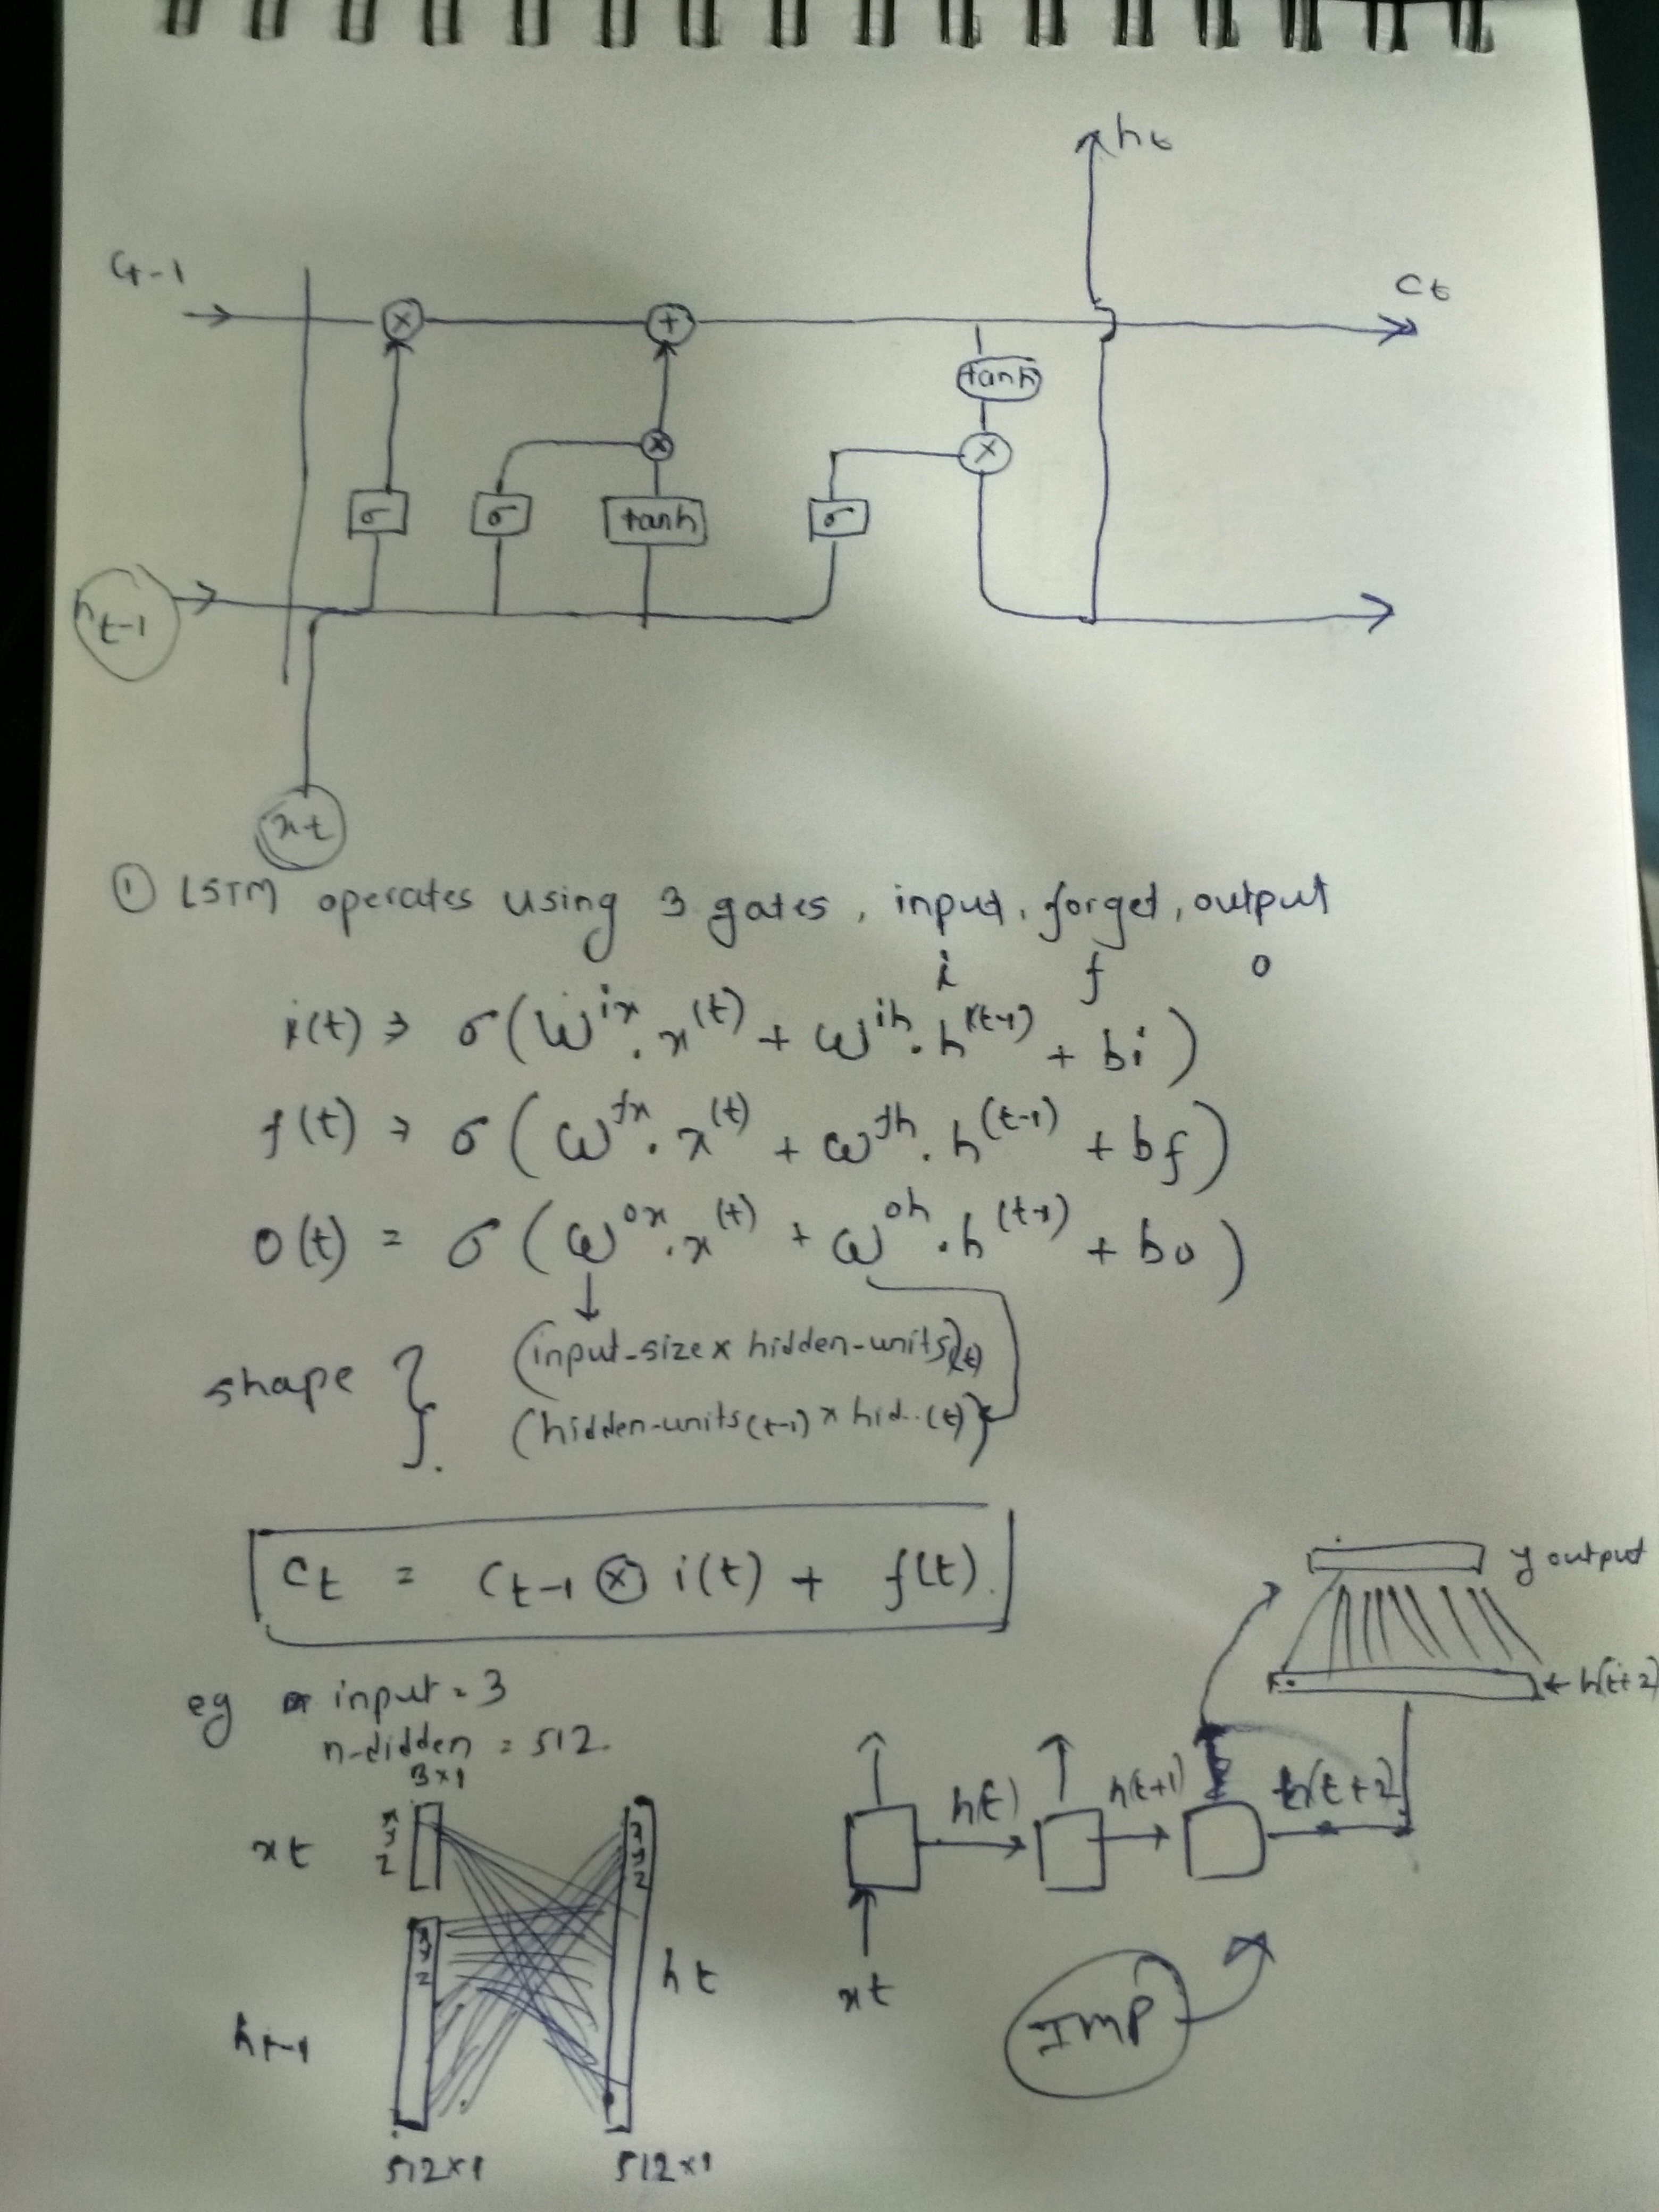 ht
Ct-1
Ct
× +
tanh
× ×
σ σ tanh σ
ht-1
xt
① LSTM operates using 3 gates, input, forget, output
i f o
i(t) → σ(W^ix . x^(t) + W^ih . h^(t-1) + bi)
f(t) → σ(W^fx . x^(t) + W^fh . h^(t-1) + bf)
o(t) = σ(W^ox . x^(t) + W^oh . h^(t-1) + bo)
↓
shape }
(input-size × hidden-units)(t)
(hidden-units(t-1) × hid..(t))
Ct = Ct-1 ⊗ i(t) + f(t).
y output
← h(t+2)
eg input = 3
n-didden = 512.
3×1
xt x y z
x y z
h(t) h(t+1) h(t+2)
x y z
ht
xt
IMP
ht-1
512×1 512×1